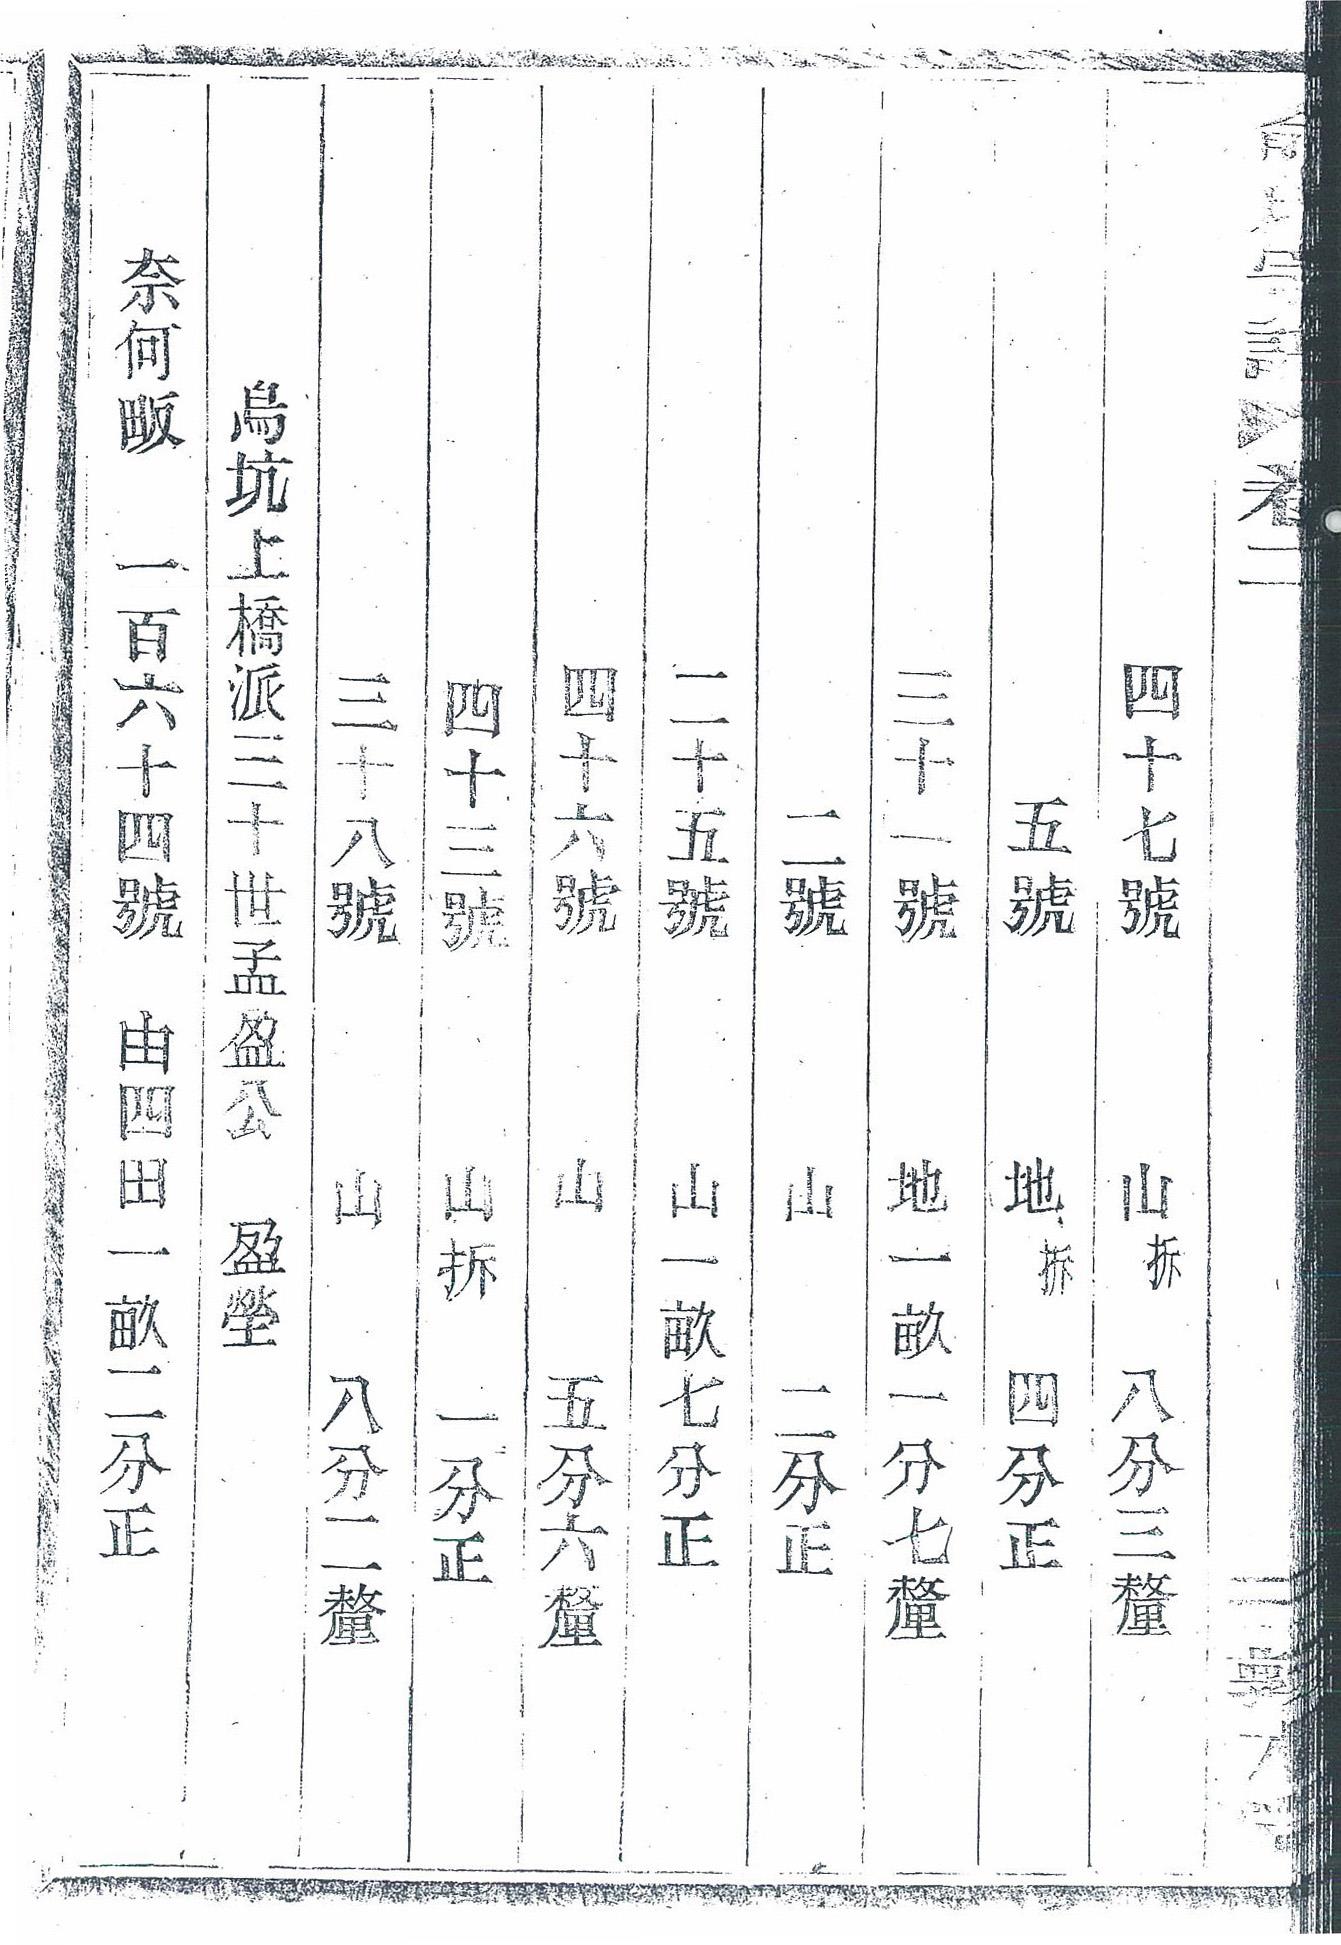 卷二
四十七號 山拆 八分三釐
五號 地拆 四分正
三十一號 地一畝一分七釐
二號 山 二分正
二十五號 山一畝七分正
四十六號 山 五分六釐
四十三號 山拆 一分正
三十八號 山 八分二釐
烏坑上橋派三十世孟盈公 盈塋
奈何畈 一百六十四號 由四田一畝二分正